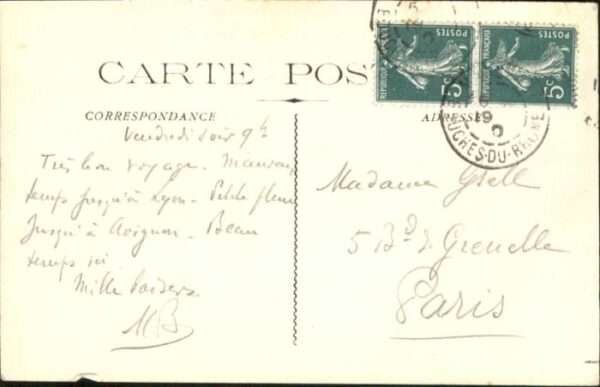 CARTE POS
CORRESPONDANCE
ADRESSE
POSTES
REPUBLIQUE FRANÇAISE
5c
POSTES
REPUBLIQUE FRANÇAISE
5c
19
BOUCHES-DU-RHONE
Vendredi soir 9h
Très bon voyage. Mauvais
temps jusqu'à Lyon - Petite pluie
jusqu'à Avignon - Beau
temps ici
Mille baisers
MB
Madame
5 Bd de Grenelle
Paris